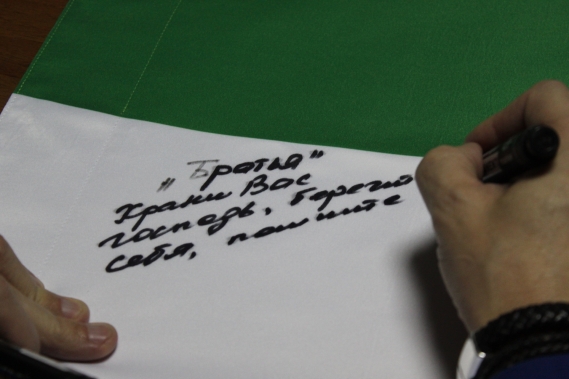 "Братья"
Храни Вас
господь, береги
себя, помните